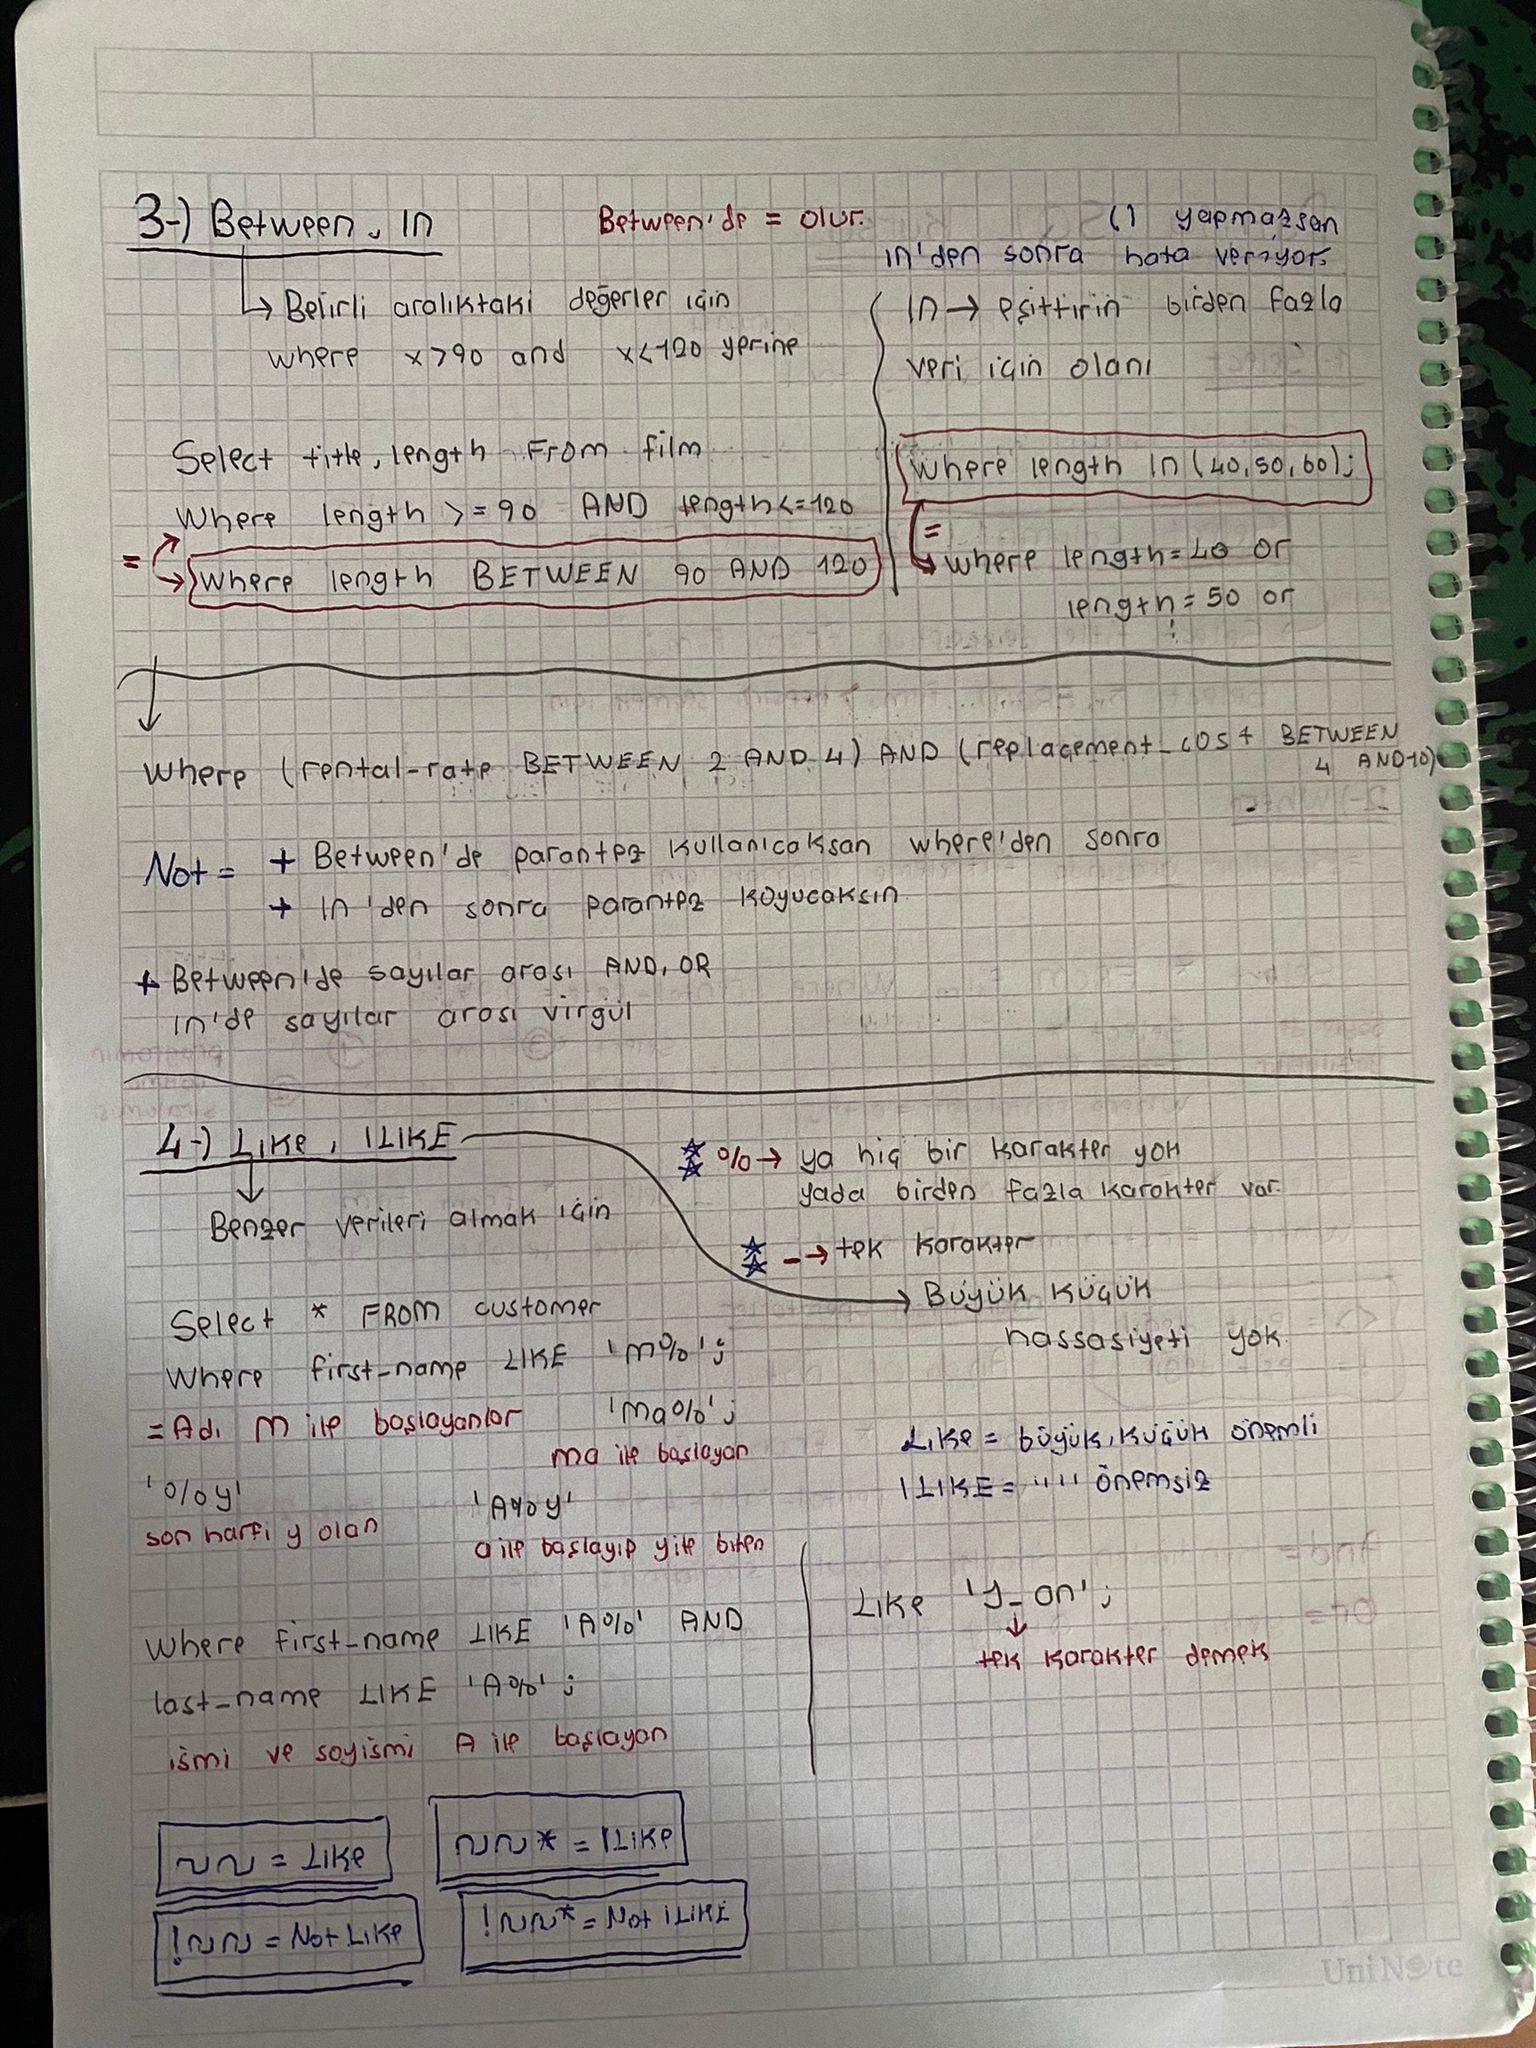 3-) Between, In
Between'de = olur.
() yapmazsan
in'den sonra hata veriyor.
Belirli aralıktaki değerler için
where x>90 and x<120 yerine
In → eşittirin birden fazla
veri için olanı
Select title, length From film
Where length >= 90 AND length<=120
= where length BETWEEN 90 AND 120
where length In (40,50,60);
=
where length=40 or
length=50 or
⋮
where (rental-rate BETWEEN 2 AND 4) AND (replacement_cost BETWEEN
4 AND 10)
Not = + Between'de parantez kullanıcaksan where'den sonra
+ In'den sonra parantez koyucaksın
+ Between'de sayılar arası AND, OR
in'de sayılar arası virgül
4-) Like, ILIKE
Benzer verileri almak için
% → ya hiç bir karakter yok
yada birden fazla karakter var.
_ → tek karakter
Büyük küçük
hassasiyeti yok
Select * FROM customer
Where first_name LIKE 'M%';
= Adı M ile başlayanlar
'Ma%';
ma ile başlayan
'%y'
son harfi y olan
'A%y'
a ile başlayıp y ile biten
Like = büyük, küçük önemli
ILIKE = "" önemsiz
where first_name LIKE 'A%' AND
last_name LIKE 'A%';
ismi ve soyismi A ile başlayan
Like 'J_on';
tek karakter demek
~~ = Like
~~* = ILike
!~~ = Not Like
!~~* = Not iLiKE
UniNote